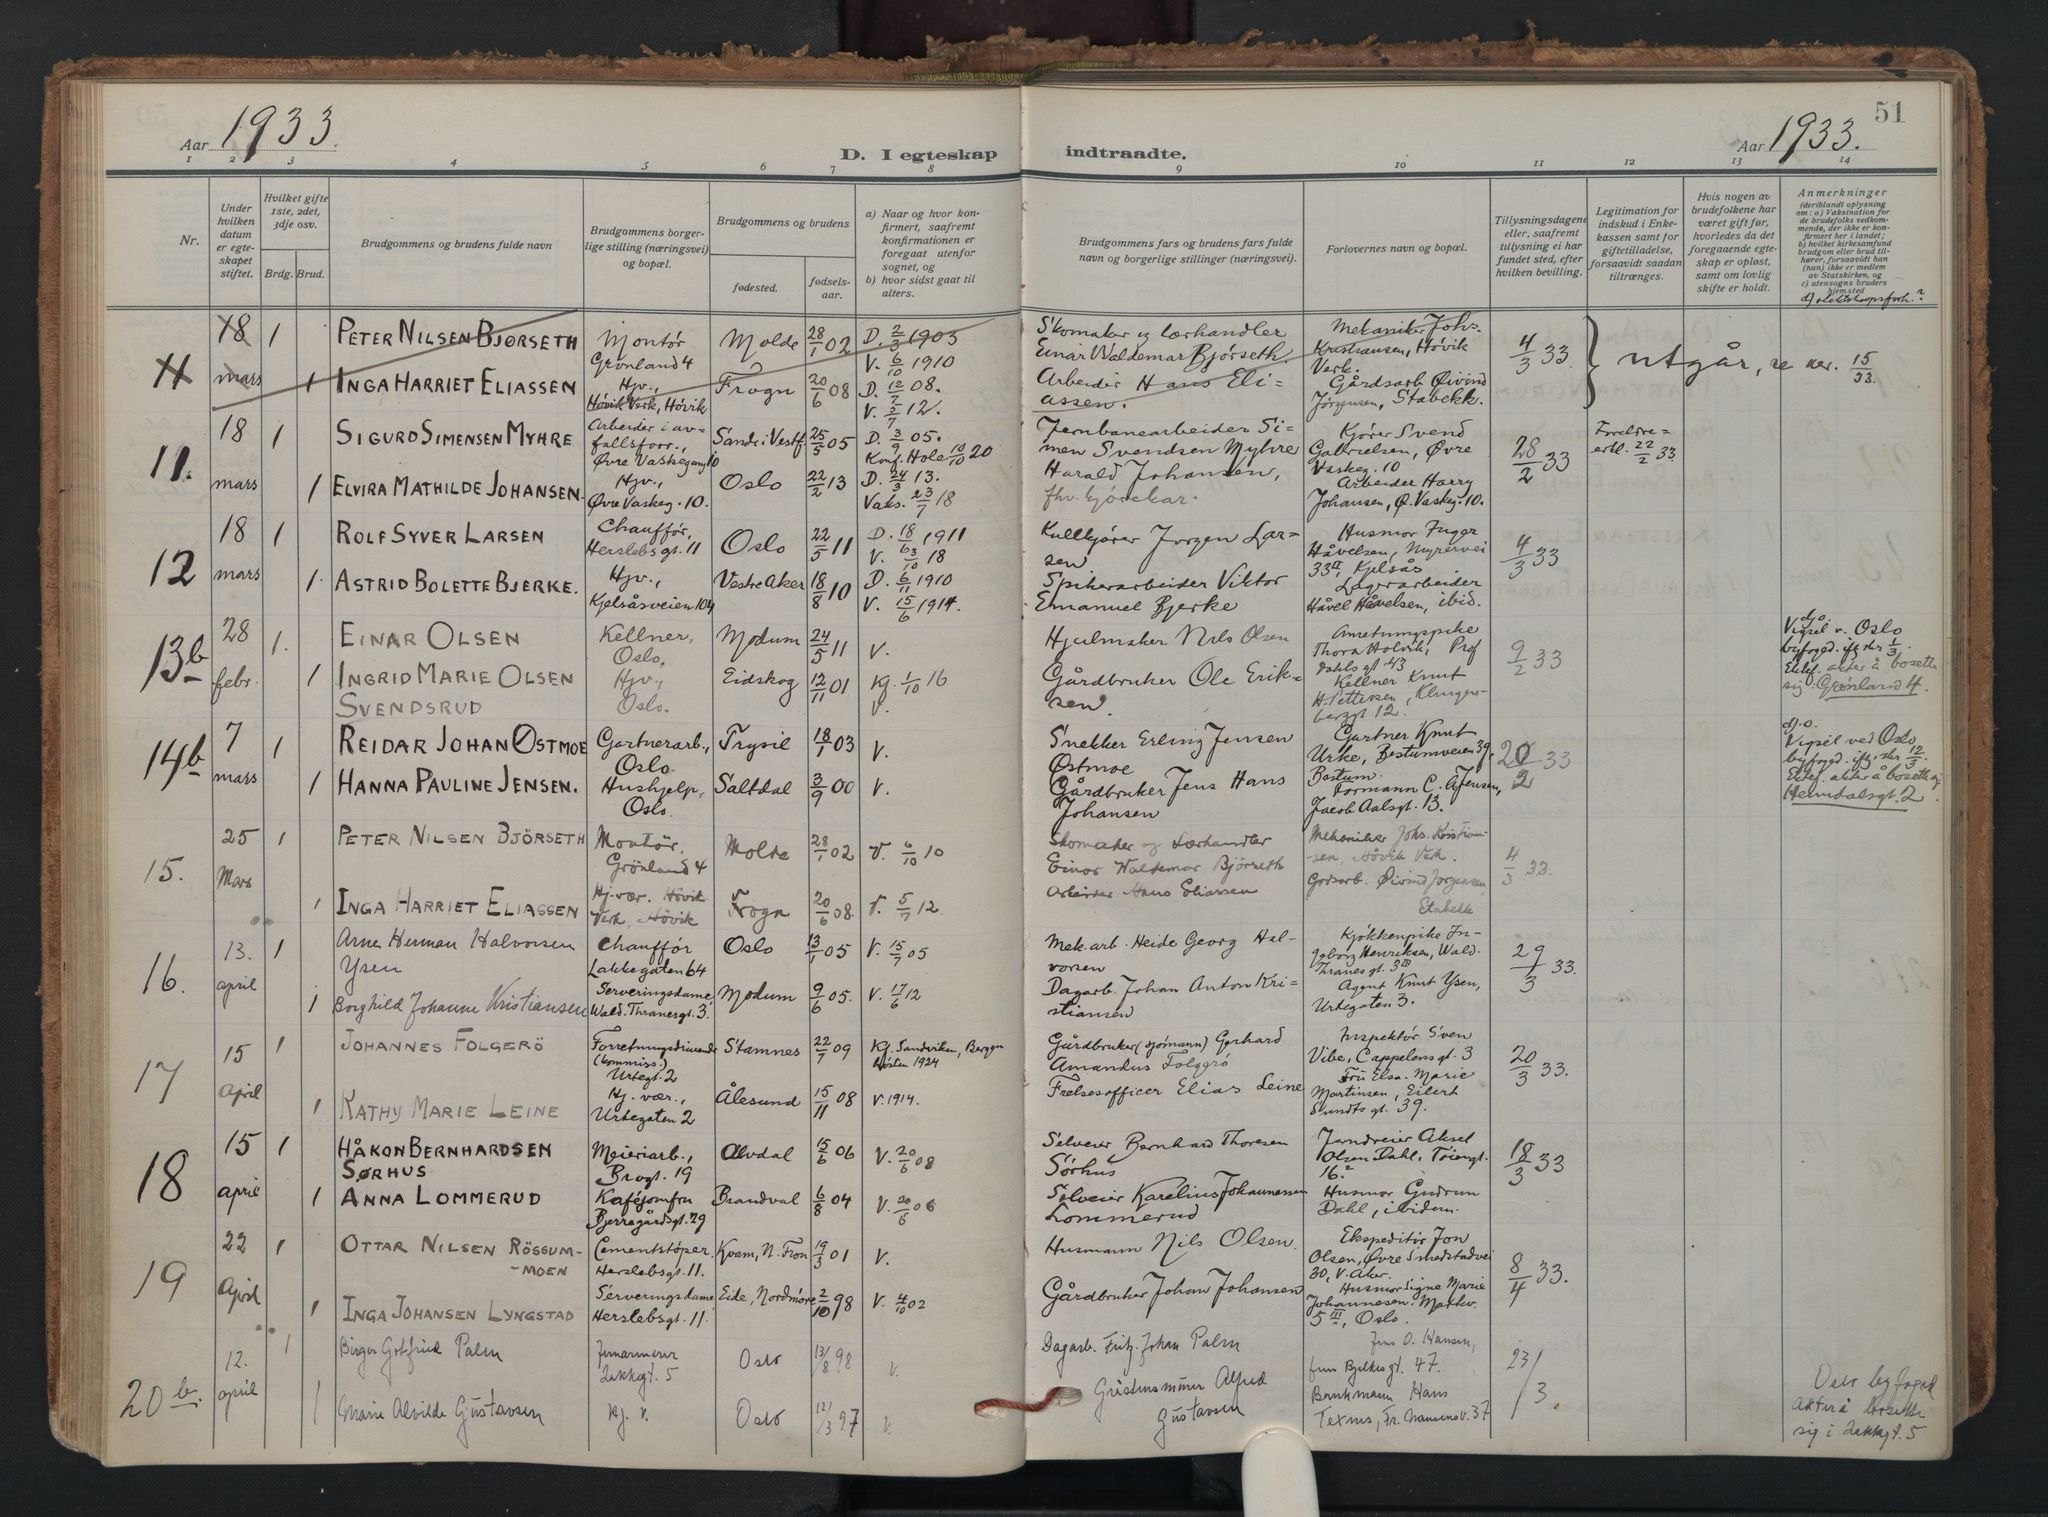 Aar 1933
D. I egteskap indtraadte.
Aar 1933.
51
1 2 3 4 5 6 7 8 9 10 11 12 13 14
Nr.
Under hvilken datum er egteskapet stiftet.
Hvilket gifte 1ste, 2det, 3dje osv.
Brdg. Brud.
Brudgommens og brudens fulde navn
Brudgommens borgerlige stilling (næringsvei) og bopæl.
Brudgommens og brudens
fødested. fødselsaar.
a) Naar og hvor konfirmert, saafremt konfirmationen er foregaat utenfor sognet, og
b) hvor sidst gaat til alters.
Brudgommens fars og brudens fars fulde navn og borgerlige stillinger (næringsvei).
Forlovernes navn og bopæl.
Tillysningsdagene eller, saafremt tillysning ei har fundet sted, efter hvilken bevilling.
Legitimation for indskud i Enkekassen samt for giftetilladelse, forsaavidt saadan tiltrænges.
Hvis nogen av brudefolkene har været gift før, hvorledes da det foregaaende egteskap er opløst, samt om lovlig skifte er holdt.
Anmerkninger
(deriblandt oplysning om: a) Vaksination for de brudefolks vedkommende, der ikke er konfirmert her i landet;
b) hvilket kirkesamfund brudgom eller brud tilhører, forsaavidt han (hun) ikke er medlem av Statskirken, og
c) utensogns bruders hjemsted
11 18 mars 1 PETER NILSEN BJØRSETH Montør Grønland 4 Molde 28/1 02 D. 2/3 1903 V. 6/10 1910 Skomaker og lærhandler Einar Waldemar Bjørseth Mekaniker Johs. Kristiansen, Høvik Verk. 4/3 33 utgår, se nr. 15/33.
1 INGA HARRIET ELIASSEN Hjv., Høvik Verk, Høvik Frogn 20/6 08 D. 12/7 08. V. 5/7 12. Arbeider Hans Eliassen. Gårdsarb. Øivind Jørgensen, Stabekk.
11. 18 mars 1 SIGURD SIMENSEN MYHRE Arbeider i avfallsforr., Øvre Vaskegang 10 Sande i Vestf. 25/5 05 D. 3/9 05. Konf. Hole 10/10 20 Jernbanearbeider Simen Svendsen Myhre Kjører Svend Gabrielsen, Øvre Vaskeg. 10 28/2 33 Foreldreerkl. 22/2 33.
1 ELVIRA MATHILDE JOHANSEN. Hjv., Øvre Vaskeg. 10. Oslo 22/2 13 D. 24/3 13. Vaks. 23/7 18 Harald Johansen, fhv. kjørekar. Arbeider Harry Johansen, Ø. Vaskeg. 10.
12 18 mars 1 ROLF SYVER LARSEN Chauffør, Herslebsgt. 11 Oslo 22/5 11 D. 18/6 1911 V. 3/10 18 Kullkjører Jørgen Larsen Husmor Inger Håvelsen, Myrervei 33 II, Kjelsås 4/3 33
1. ASTRID BOLETTE BJERKE. Hjv., Kjelsåsveien 104 Vestre Aker 18/8 10 D. 6/11 1910 V. 15/6 1914. Spikerarbeider Viktor Emanuel Bjerke Lagerarbeider Håvel Håvelsen, ibid.
13b 28 febr. 1. EINAR OLSEN Kellner, Oslo. Modum 24/5 11 V. Hjulmaker Nils Olsen Anretningspike Thora Holvik, Prof Dahls gt 43 9/2 33 Vigsel v. Oslo byfogd. Grønland 4.
1 INGRID MARIE OLSEN SVENDSRUD Hjv., Oslo. Eidskog 12/11 01 Kg. 1/10 16 V. Gårdbruker Ole Eriksen. Kellner Knut H. Pettersen, Klingenberggt 12.
14b 7 mars 1 REIDAR JOHAN ØSTMOE Gartnerarb., Oslo. Trysil 18/1 03 V. Snekker Erling Jensen Østmoe Gartner Knut Urke, Bestumveien 39, Bestum. 20/2 33 Vigsel ved Oslo byfogd. Heimdalsgt. 2
1 HANNA PAULINE JENSEN. Hushjelp, Oslo. Saltdal 3/9 00 V. Gårdbruker Jens Hans Johansen Formann C. A. Jensen, Jacob Aalsgt. 13.
15. 25 Mars 1 PETER NILSEN BJÖRSETH Montör, Grönland 4 Molde 28/1 02 V. 6/10 10 Skomaker og Lærhandler Einar Waldemar Bjørseth Mekaniker Johs. Kristiansen, Høvik Verk. 4/3 33.
1 INGA HARRIET ELIASSEN Hj.vær. Hövik Verk, Hövik Frogn 20/6 08. V. 5/7 12. Arbeider Hans Eliassen Gardsarb. Øivind Jørgensen, Stabekk
16. 13. april 1 Arne Herman Halvorsen Ysen Chauffør Lakkegaten 64 Oslo 13/1 05 V. 15/7 05 Mek. arb. Heide Georg Halvorsen Kjøkkenpike Ingeborg Henriksen, Wald. Thranesgt. 3 III 29/3 33.
1 Borghild Johanne Kristiansen Serveringsdame, Wald. Thranesgt. 3. Modum 9/6 05. V. 17/6 12 Dagarb. Johan Anton Kristiansen Agent Knut Ysen, Urtegaten 3.
17 15 april 1 JOHANNES FOLGERÖ Forretningsdrivende (kommiss.) Urtegt. 2 Stamnes 22/7 09 Kg. Sandviken, Bergen Høsten 1924 Gårdbruker (sjömann) Gerhard Amandus Folgerö Inspektör Sven Vibe, Cappelensgt. 3 20/3 33.
1 KATHY MARIE LEINE Hj. vær., Urtegaten 2 Ålesund 15/11 08 V. 1914. Frelsesofficer Elias Leine Fru Elsa-Marie Martinsen, Eilert Sundtsgt. 39.
18 15 april 1 HÅKON BERNHARDSEN SØRHUS Meieriarb., Brogt. 19 Alvdal 15/6 06 V. 20/6 08 Selveier Bernhard Thoresen Sørhus Jerndreier Aksel Olsen Dahl, Tøiengt. 16. 18/3 33
1 ANNA LOMMERUD Kaféjomfru Bjerregårdsgt. 29 Brandval 6/8 04 V. 20/6 06 Selveier Karelius Johannessen Lommerud Husmor Gudrun Dahl, ibidem.
19 22 April 1 OTTAR NILSEN RÖSSUM-MOEN Cementstöper. Herslebsgt. 11. Kvam, N. Fron 19/3 01 V. Husmann Nils Olsen. Ekspeditör Jon Olsen, Øvre Smedstadvei 30, V. Aker. 8/4 33.
1 INGA JOHANSEN LYNGSTAD Serveringsdame Herslebsgt. 11. Eide, Nordmöre 2/10 98 V. 4/10 02 Gårdbruker Johan Johansen Husmor Signe Marie Johannesen. Markv. 5 III, Oslo.
20 b. 12. april 1 Birger Gotfried Palm Jernarmerer Lakkegt. 5 Oslo 13/8 98 V. Dagarb. Fritz Johan Palm Jens O. Hansen, Jens Bjelkesgt. 47. 23/3. Oslo byfogd akter å bosette sig i Lakkegt. 5
1 Marie Alvilde Gustavsen Hj. v. Oslo 12/3 97 V. Alfred Gustavsen Hans Texnes, Fr. Nansens v. 37